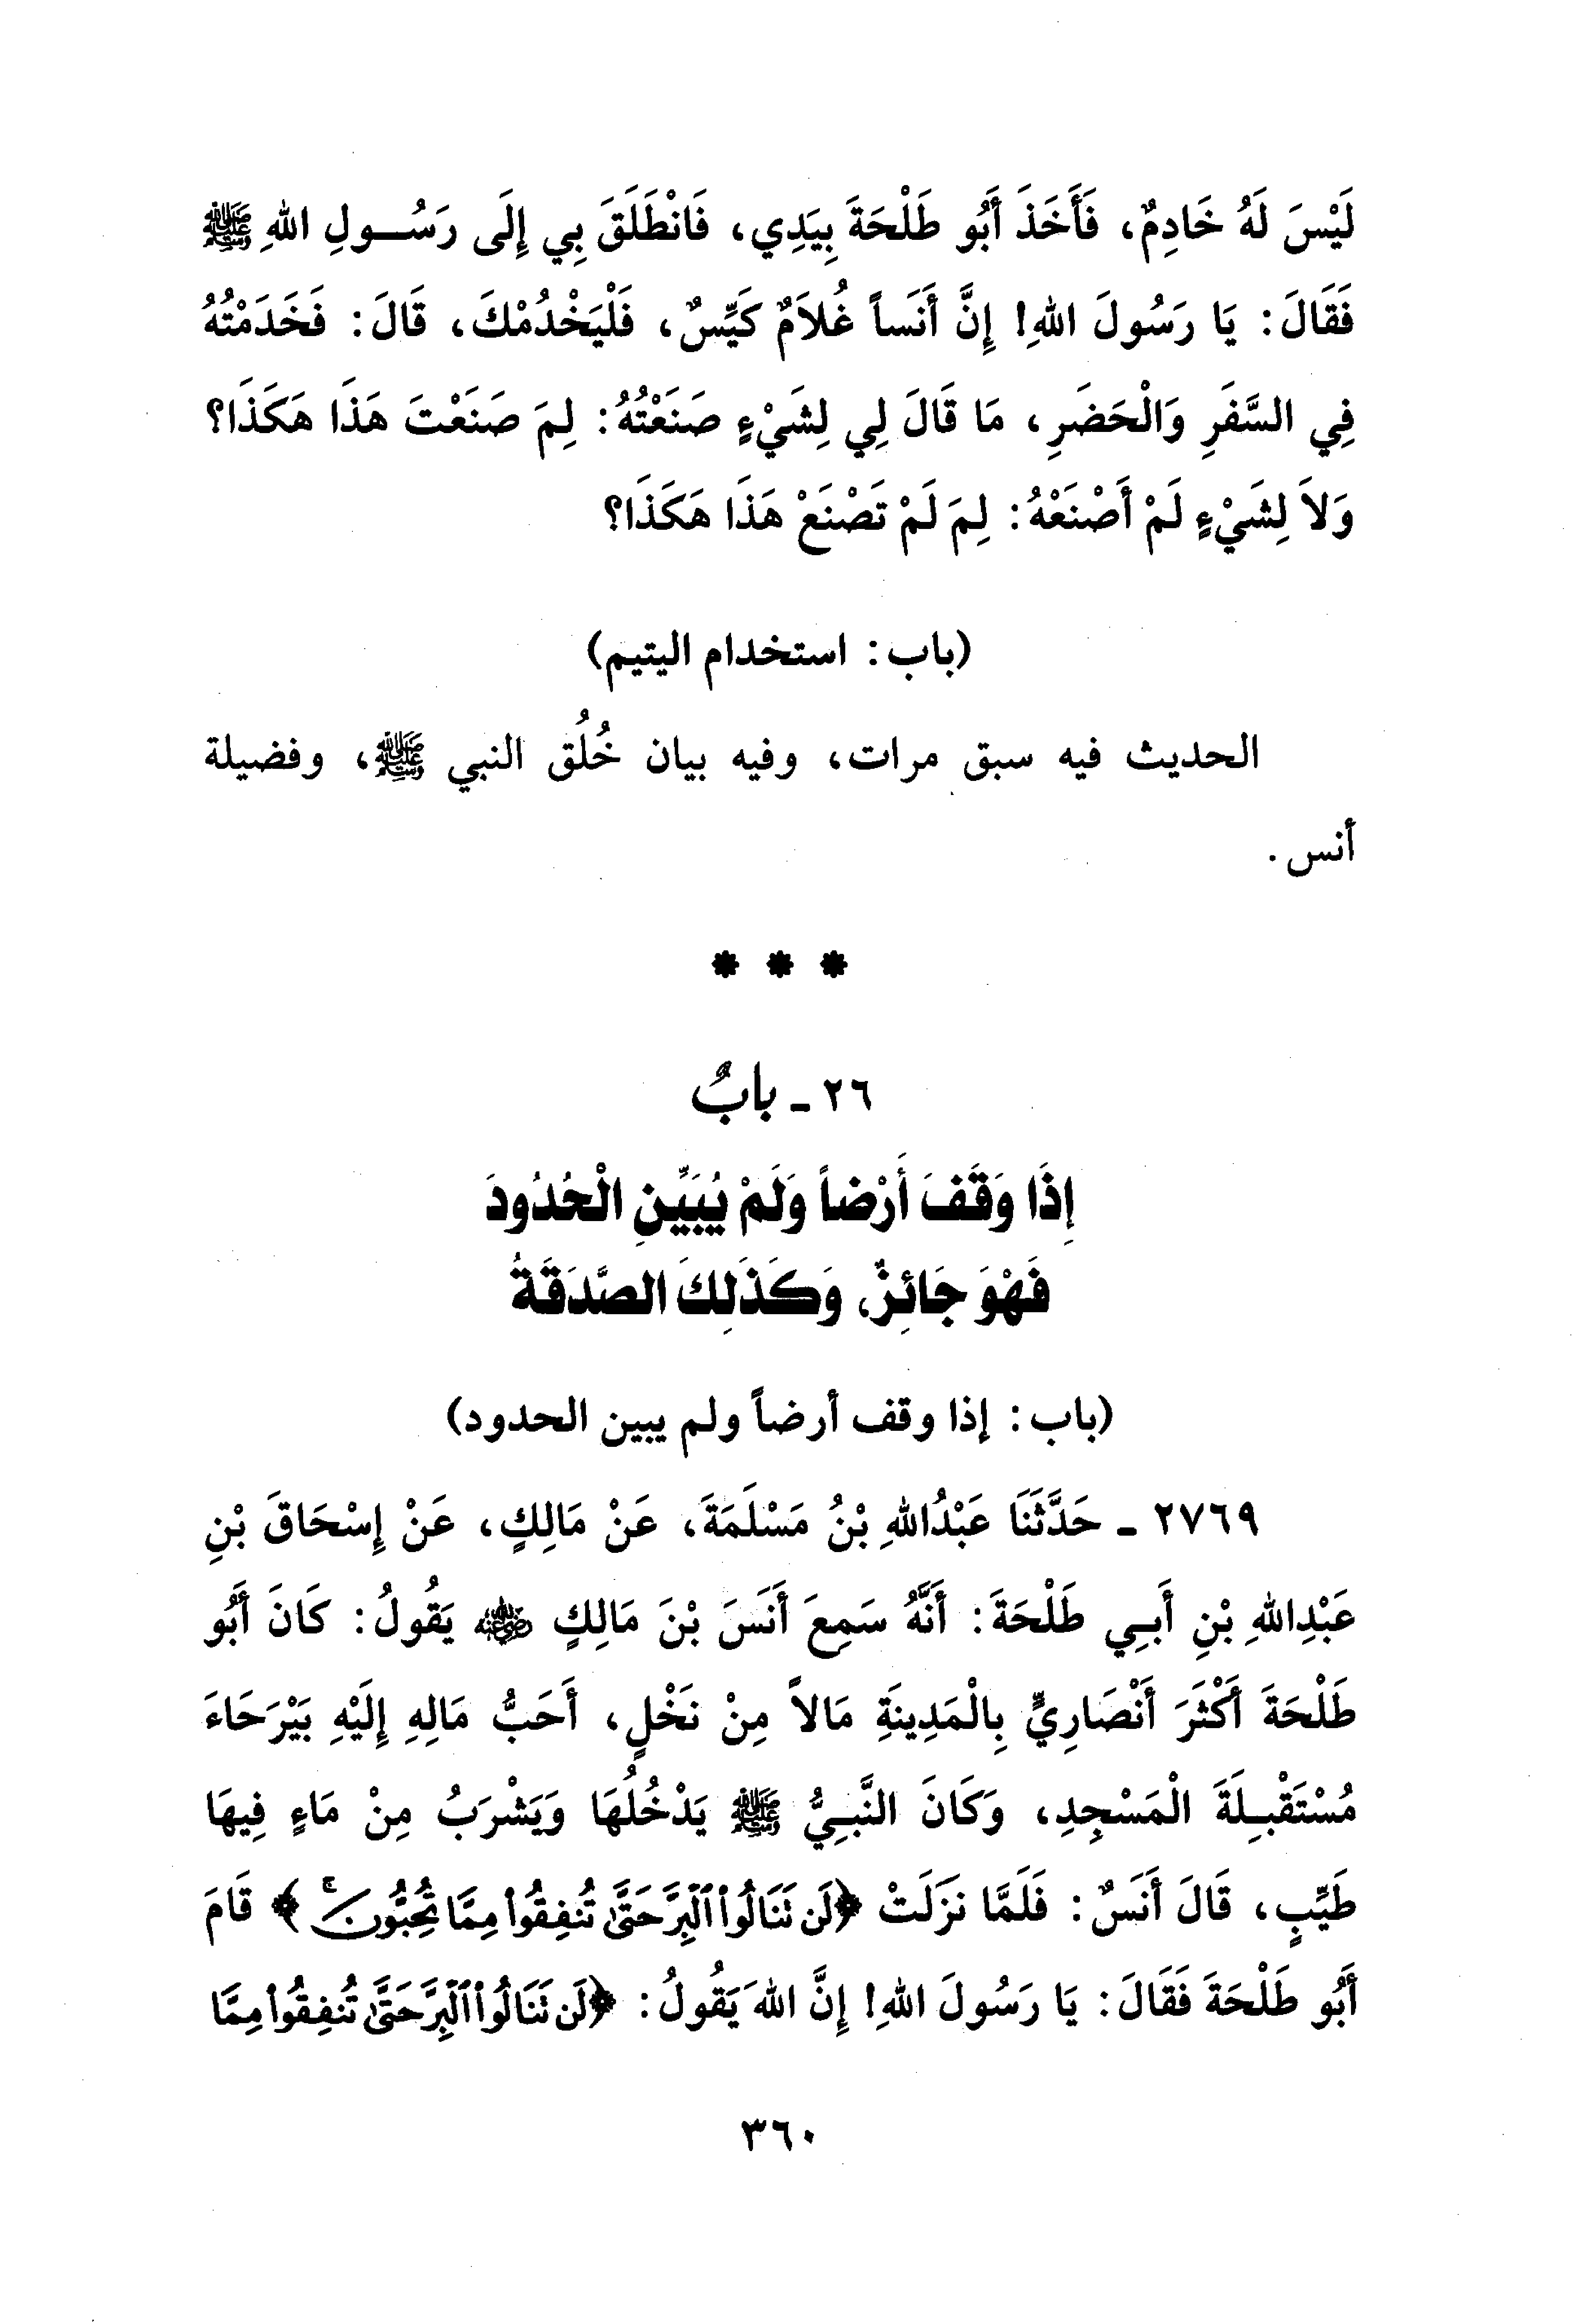 لَيْسَ لَهُ خَادِمٌ، فَأَخَذَ أَبُو طَلْحَةَ بِيَدِي، فَانْطَلَقَ بِي إِلَى رَسُـولِ اللهِ ﷺ
فَقَالَ: يَا رَسُولَ اللهِ! إِنَّ أَنَساً غُلاَمٌ كَيِّسٌ، فَلْيَخْدُمْكَ، قَالَ: فَخَدَمْتُهُ
فِي السَّفَرِ وَالْحَضَرِ، مَا قَالَ لِي لِشَيْءٍ صَنَعْتُهُ: لِمَ صَنَعْتَ هَذَا هَكَذَا؟
وَلاَ لِشَيْءٍ لَمْ أَصْنَعْهُ: لِمَ لَمْ تَصْنَعْ هَذَا هَكَذَا؟
(باب: استخدام اليتيم)
الحديث فيه سبق مرات، وفيه بيان خُلُق النبي ﷺ، وفضيلة
أنس.
* * *
٢٦ - بابٌ
إِذَا وَقَفَ أَرْضاً وَلَمْ يُبَيِّنِ الْحُدُودَ
فَهْوَ جَائِزٌ، وَكَذَلِكَ الصَّدَقَةُ
(باب: إذا وقف أرضاً ولم يبين الحدود)
٢٧٦٩ - حَدَّثَنَا عَبْدُاللهِ بْنُ مَسْلَمَةَ، عَنْ مَالِكٍ، عَنْ إِسْحَاقَ بْنِ
عَبْدِاللهِ بْنِ أَبِـي طَلْحَةَ: أَنَّهُ سَمِعَ أَنَسَ بْنَ مَالِكٍ ﵁ يَقُولُ: كَانَ أَبُو
طَلْحَةَ أَكْثَرَ أَنْصَارِيٍّ بِالْمَدِينَةِ مَالاً مِنْ نَخْلٍ، أَحَبُّ مَالِهِ إِلَيْهِ بَيْرَحَاءَ
مُسْتَقْبِـلَةَ الْمَسْجِدِ، وَكَانَ النَّبِـيُّ ﷺ يَدْخُلُهَا وَيَشْرَبُ مِنْ مَاءٍ فِيهَا
طَيِّبٍ، قَالَ أَنَسٌ: فَلَمَّا نَزَلَتْ ﴿لَن تَنَالُوا۟ ٱلْبِرَّ حَتَّىٰ تُنفِقُوا۟ مِمَّا تُحِبُّونَ ۚ﴾ قَامَ
أَبُو طَلْحَةَ فَقَالَ: يَا رَسُولَ اللهِ! إِنَّ اللهَ يَقُولُ: ﴿لَن تَنَالُوا۟ ٱلْبِرَّ حَتَّىٰ تُنفِقُوا۟ مِمَّا
٣٦٠